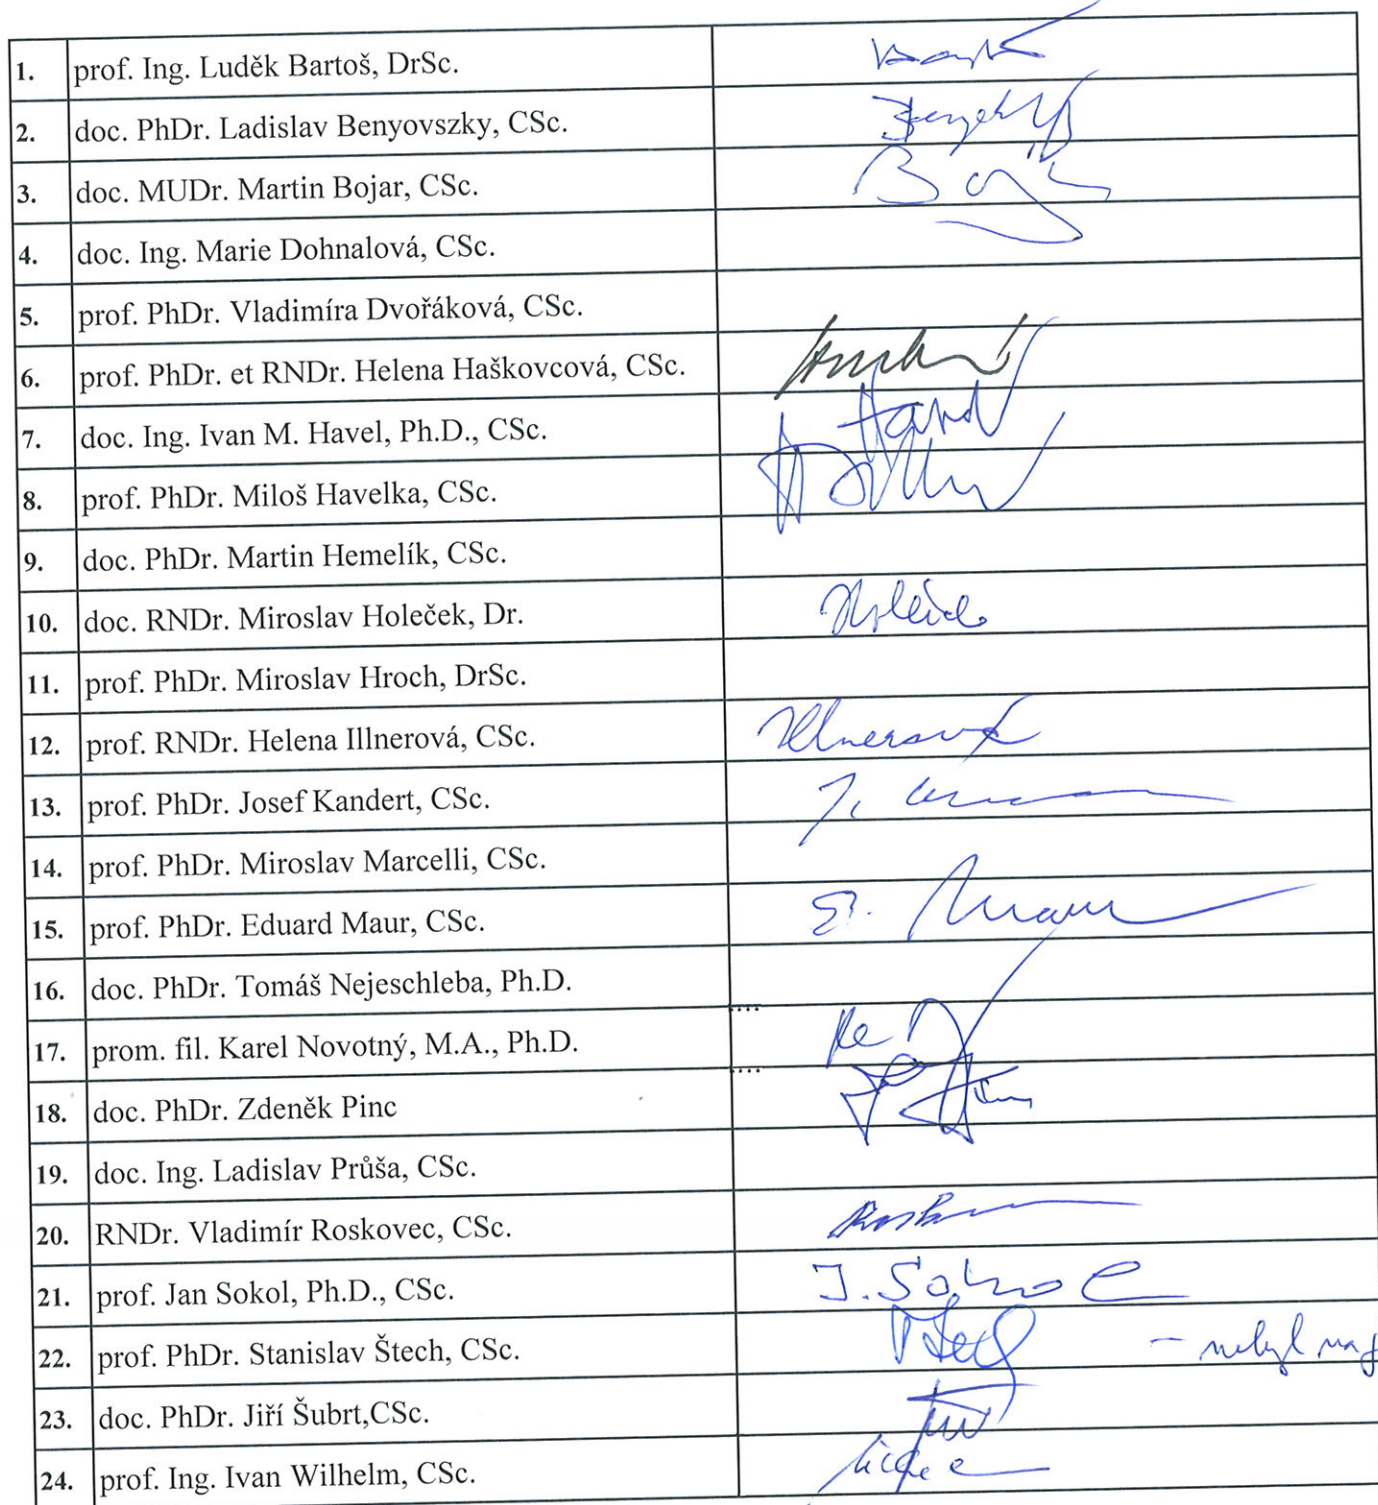 1. prof. Ing. Luděk Bartoš, DrSc.
2. doc. PhDr. Ladislav Benyovszky, CSc.
3. doc. MUDr. Martin Bojar, CSc.
4. doc. Ing. Marie Dohnalová, CSc.
5. prof. PhDr. Vladimíra Dvořáková, CSc.
6. prof. PhDr. et RNDr. Helena Haškovcová, CSc.
7. doc. Ing. Ivan M. Havel, Ph.D., CSc.
8. prof. PhDr. Miloš Havelka, CSc.
9. doc. PhDr. Martin Hemelík, CSc.
10. doc. RNDr. Miroslav Holeček, Dr.
11. prof. PhDr. Miroslav Hroch, DrSc.
12. prof. RNDr. Helena Illnerová, CSc. Illnerová
13. prof. PhDr. Josef Kandert, CSc.
14. prof. PhDr. Miroslav Marcelli, CSc.
15. prof. PhDr. Eduard Maur, CSc. E. Maur
16. doc. PhDr. Tomáš Nejeschleba, Ph.D.
17. prom. fil. Karel Novotný, M.A., Ph.D.
18. doc. PhDr. Zdeněk Pinc
19. doc. Ing. Ladislav Průša, CSc.
20. RNDr. Vladimír Roskovec, CSc.
21. prof. Jan Sokol, Ph.D., CSc. J. Sokol
22. prof. PhDr. Stanislav Štech, CSc. – nebyl na
23. doc. PhDr. Jiří Šubrt,CSc.
24. prof. Ing. Ivan Wilhelm, CSc.